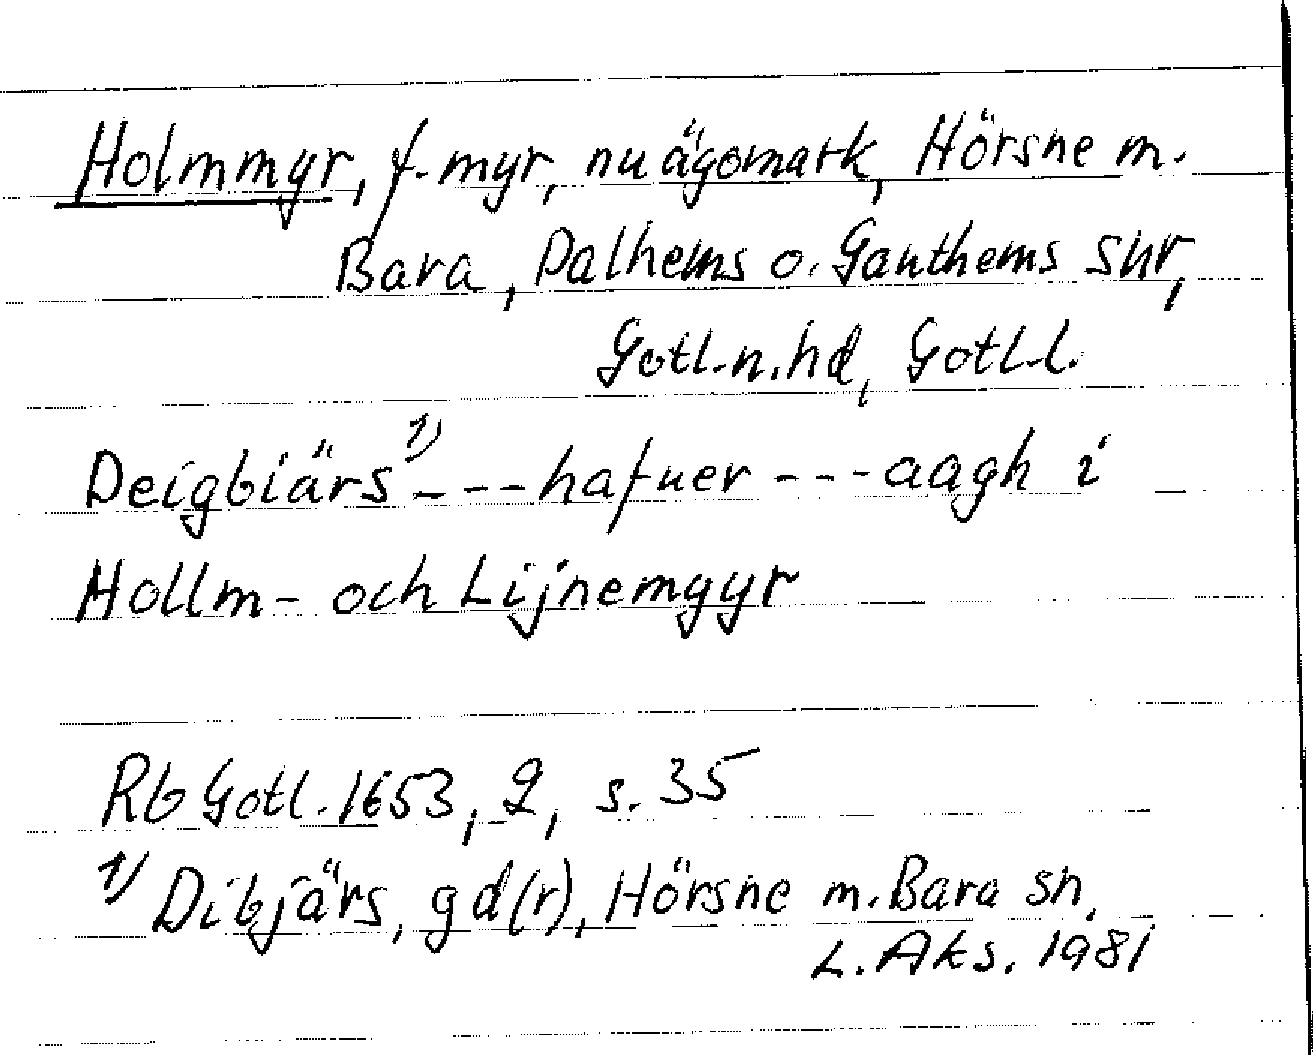 Holmmyr, f. myr, nu ägomark, Hörsne m.
Bara, Dalhems o. Ganthems snr,
Gotl. n. hd, Gotl. l.
Deigbiärs 1) - - - hafuer - - - aagh i
Hollm- och Lijnemyyr
Rb Gotl. 1653, 2, s. 35
1) Dibjärs, gd(r), Hörsne m. Bara sn.
L. Aks. 1981